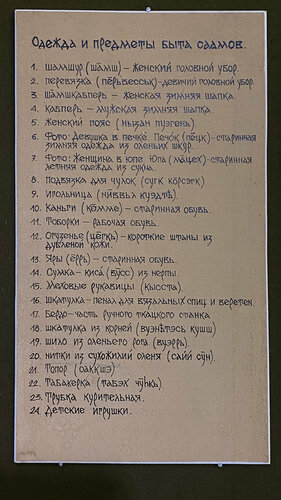 Одежда и предметы быта саамов.
1. шамшур (шāмш) – женский головной убор.
2. перевязка (пе̄рьвесськ) – девичий головной убор.
3. шāмшкабперь – женская зимняя шапка.
4. кабперь – мужская зимняя шапка.
5. женский пояс (нызан пуэгень).
6. Фото: Девушка в печке. Печо́к (пе̄цк) – старинная
зимняя одежда из оленьих шкур.
7. Фото: Женщина в юпе. Юпа (мāцех) – старинная
летняя одежда из сукна.
8. подвязка для чулок (сугк кӣрсэгк).
9. игольница (
10. Каньги (ко̄мме) – старинная обувь.
11. Тоборки – рабочая обувь.
12. Огузенье (це̄гкь) – короткие штаны из
дублёной кожи.
13. Яры (ё̄ррь) – старинная обувь.
14. Сумка – киса́ (вӯсс) из нерпы.
15. Меховые рукавицы (кысста).
16. Шкатулка – пенал для вязальных спиц и веретен.
17. Бёрдо – часть ручного ткацкого станка.
18. шкатулка из корней (вуэнӭтэсь кушш)
19. шило из оленьего рога (вуэррь).
20. нитки из сухожилий оленя (сāййй сӯн).
21. Топор (оаккшэ)
22. Табакерка (табэх чӯӈкь).
23. Трубка курительная.
24. Детские игрушки.